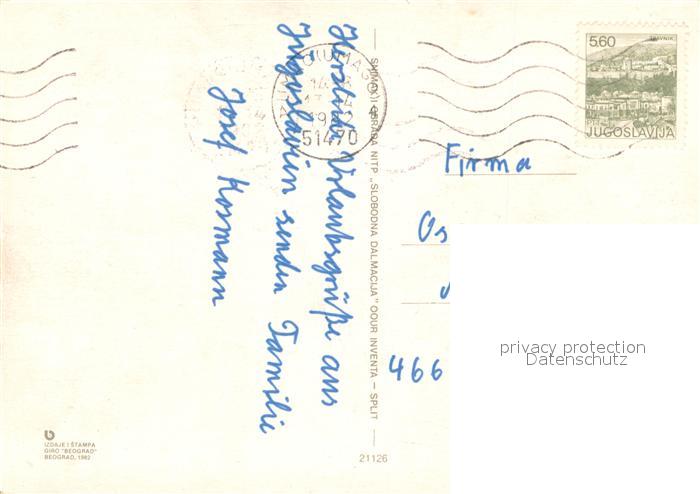 Herzliche Urlaubsgrüße aus
Jugoslavien senden Familie
Josef Kosmann
SNIMAK I IZRADA NITP „SLOBODNA DALMACIJA" OOUR INVENTA — SPLIT
(UMAG)
1982
51470
5.60
TRAVNIK
JUGOSLAVIJA
Firma
Os
466
privacy protection
Datenschutz
IZDAJE I ŠTAMPA
GIRO "BEOGRAD"
BEOGRAD, 1982
21126